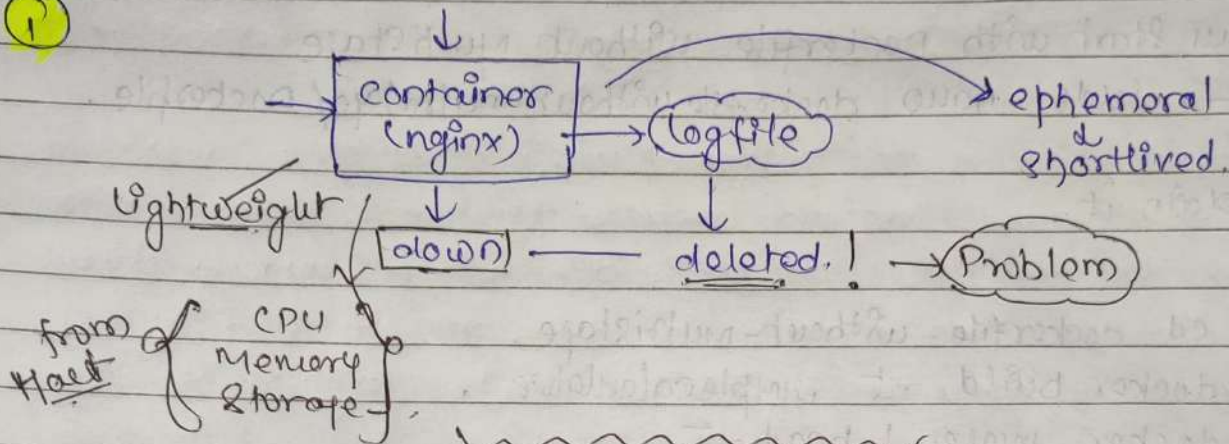 1
container
(nginx)
logfile
ephemeral
&
shortlived.
lightweight
down
deleted.!
Problem
from
Host
CPU
Memory
Storage